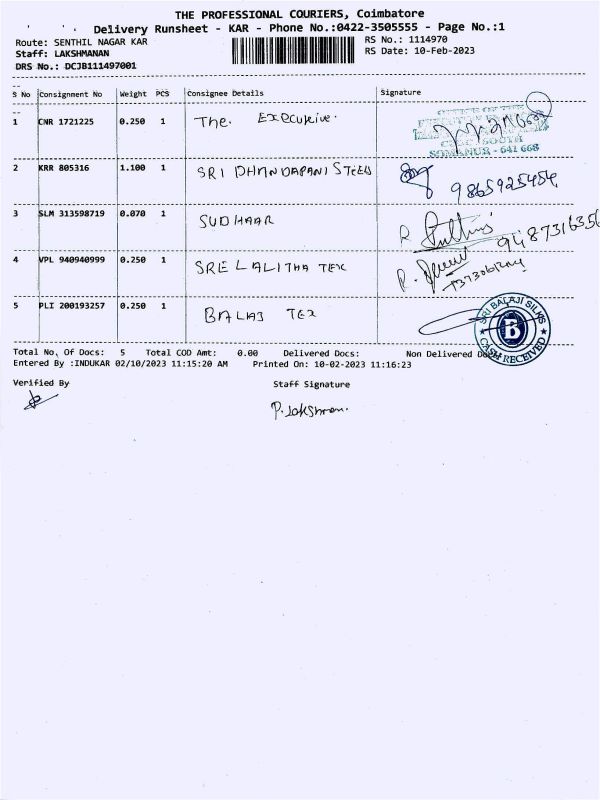 THE PROFESSIONAL COURIERS, Coimbatore
Delivery Runsheet - KAR - Phone No.:0422-3505555 - Page No.:1
Route: SENTHIL NAGAR KAR
Staff: LAKSHMANAN
DRS No.: DCJB111497001
RS No.: 1114970
RS Date: 10-Feb-2023
S No Consignment No Weight PCS Consignee Details Signature
1 CNR 1721225 0.250 1 The. Executive.
SOMANUR - 641 668
2 KRR 805316 1.100 1 SRI DHANDAPANI STEELS
9865925454
3 SLM 313598719 0.070 1 SUDHAAR
9487316356
4 VPL 940940999 0.250 1 SRE LALITHA TEX
5 PLI 200193257 0.250 1 BALAJI TEX
SRI BALAJI SILKS
B
CASH RECEIVED
Total No. Of Docs: 5 Total COD Amt: 0.00 Delivered Docs: Non Delivered
Entered By :INDUKAR 02/10/2023 11:15:20 AM Printed On: 10-02-2023 11:16:23
Verified By Staff Signature
P. Lakshman.